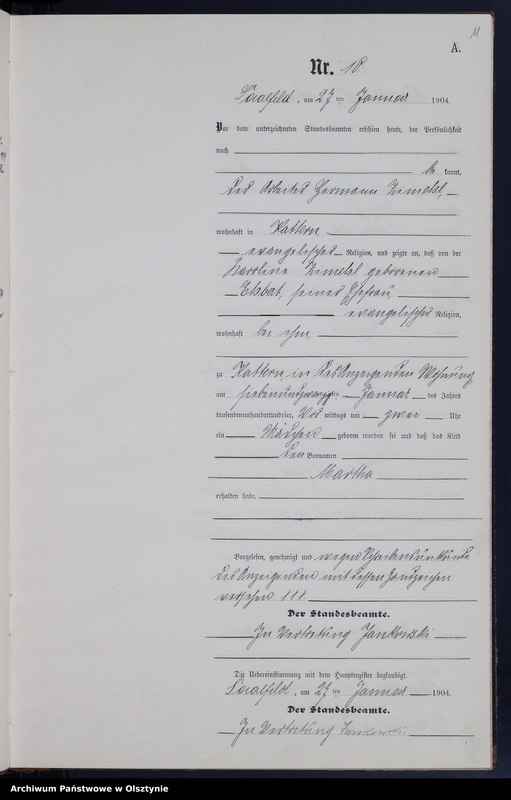 11
A.
Nr. 18.
Saalfeld, am 27 ten Januar 1904.
Vor dem unterzeichneten Standesbeamten erschien heute, der Persönlichkeit
nach
be kannt,
der Arbeiter Hermann
wohnhaft in Kattern
evangelischer Religion, und zeigte an, daß von der
Karoline geborenen
seiner Ehefrau,
evangelischer Religion,
wohnhaft bei ihm
zu Kattern in des Anzeigenden Wohnung,
am siebenundzwanzigsten Januar des Jahres
tausendneunhundertundvier, Vor mittags um zwei Uhr
ein Mädchen geboren worden sei und daß das Kind
den Vornamen
Martha
erhalten habe.
Vorgelesen, genehmigt und wegen Schreibensunkunde
des Anzeigenden mit dessen Handzeichen
versehen. †††
Der Standesbeamte.
In Vertretung Jankowski
Die Uebereinstimmung mit dem Hauptregister beglaubigt.
Saalfeld, am 27 ten Januar 1904.
Der Standesbeamte.
In Vertretung Jankowski
Archiwum Państwowe w Olsztynie